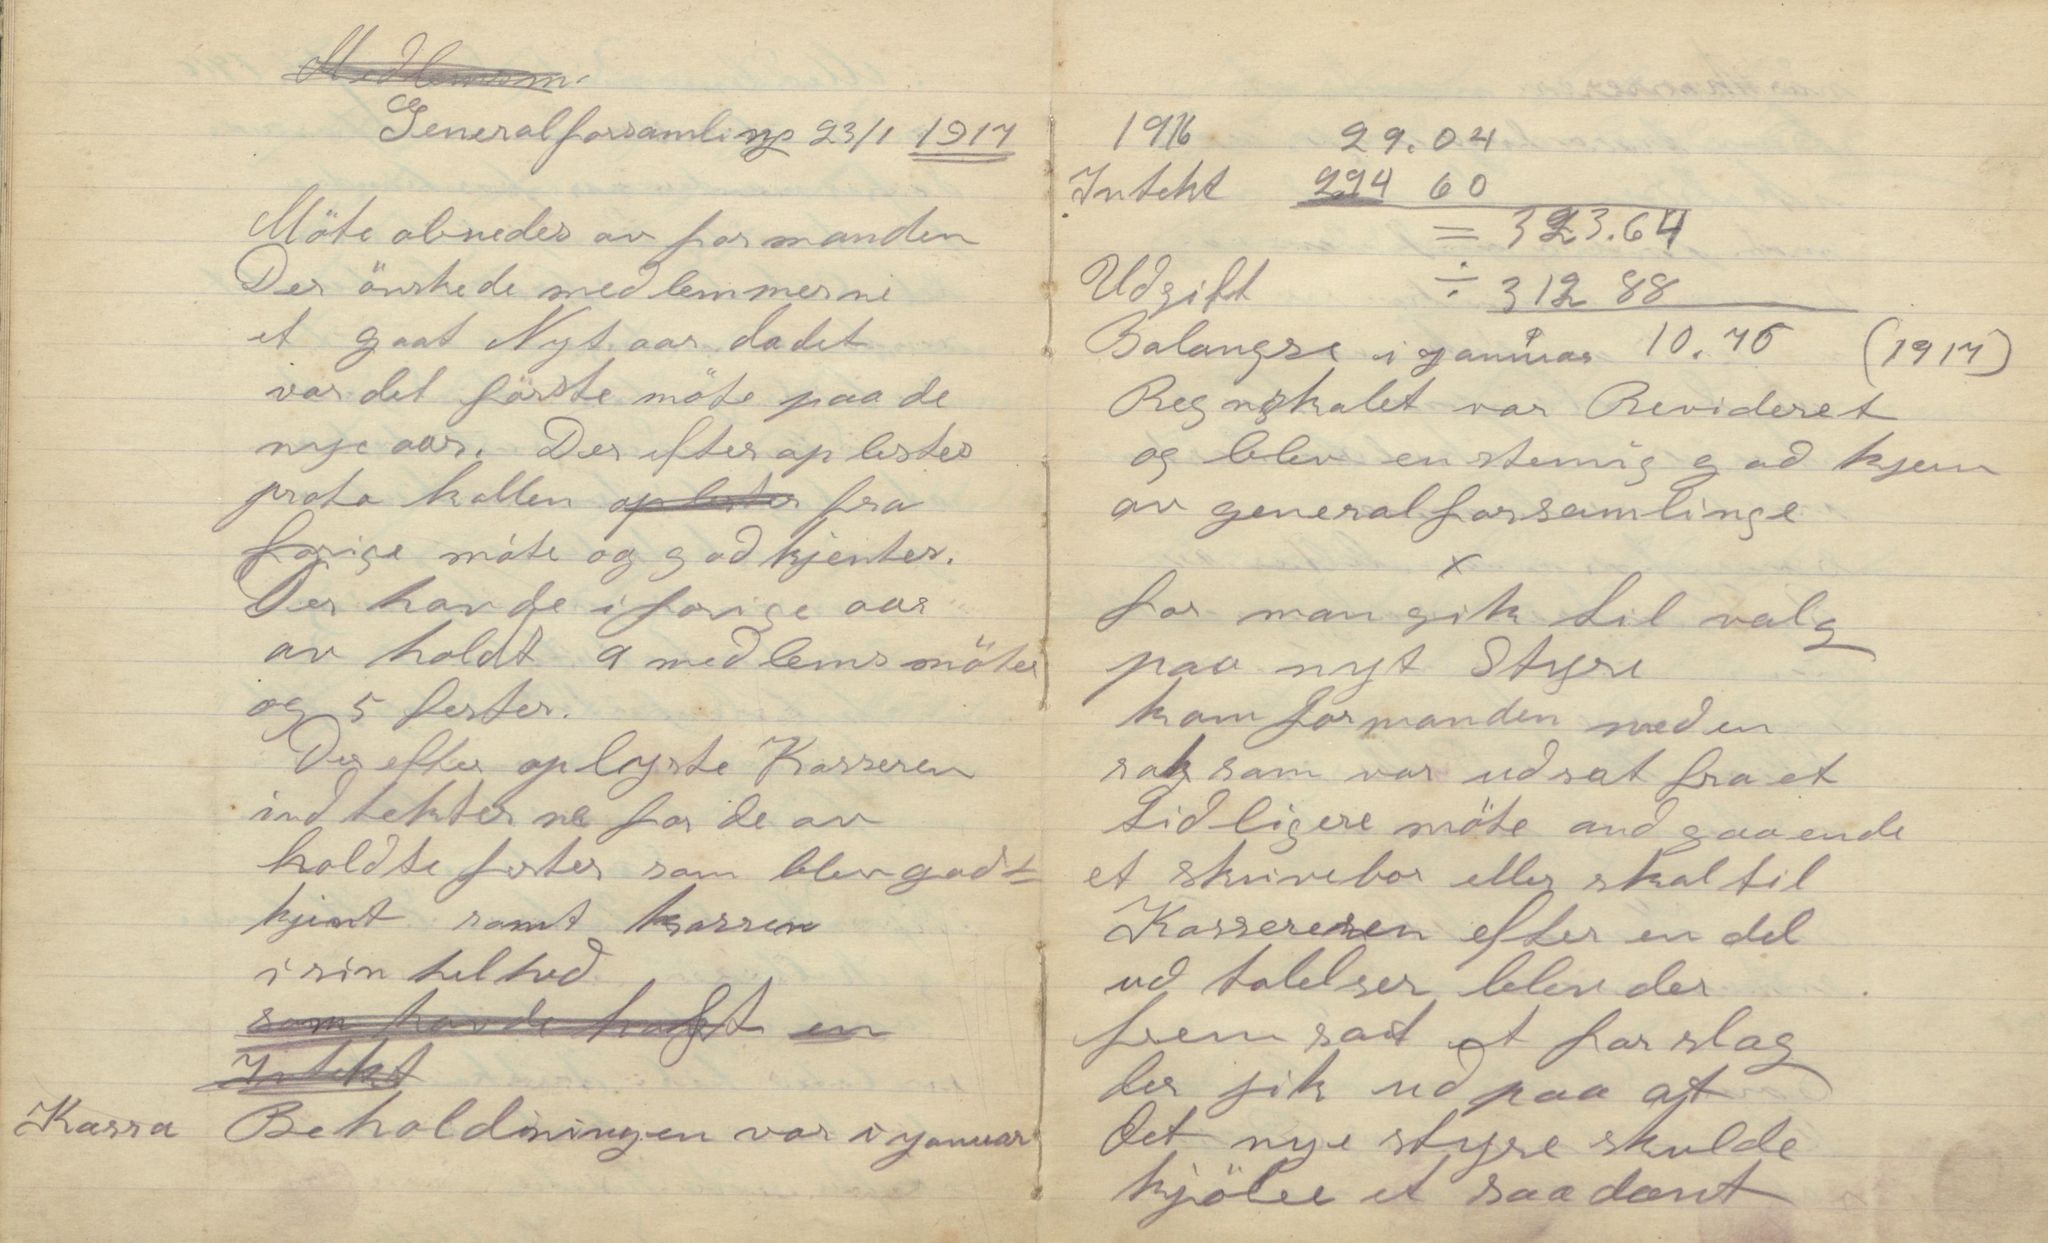 Medlemsm.
Generalforsamling 23/1 1917
Möte obnedes av formanden
Der önskede medlemmerne
et gaat Nyt aar dadet
var det förste möte paa de
nye aar. Der efter oplestes
protokollen oplestes fra
forige möte og godkjentes.
Der havde i forige aar
av holdt 9 medlemsmöter
og 5 fester.
Der efter oplyste Kasseren
indtekterne for de av
holdte fester som blev godt
kjent samt kassen
i sin helhed
som havde haft en
Intekt
Kassa Beholdniningen var i januar
1916 29.04
Intekt 294 60
= 323.64
Udgift ÷ 312 88
Balangse i januar 10.76 (1917)
Regnskalet var Revideret
og blev enstemig godkjen
av generalforsamlinge
x
for man gik til valg
paa nyt Styre
kom formanden med en
sak som var udsat fra et
tidligere möte andgaaende
et skrivebor eller skal til
Kassereren efter en del
udtalelser blev der
fremsat et forslag
der gik ud paa at
det nye styre skulde
kjöbe et saadant